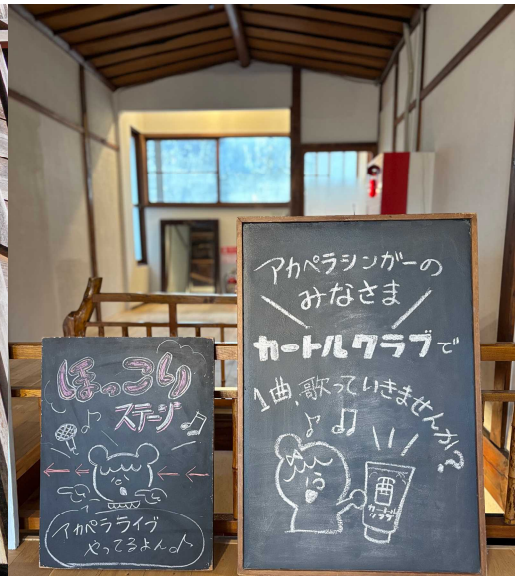 ほっこり
ステージ
アカペラライブ
やってるよん♪
アカペラシンガーの
みなさま
カートルクラブで
1曲、歌っていきませんか?
カートル
クラブ